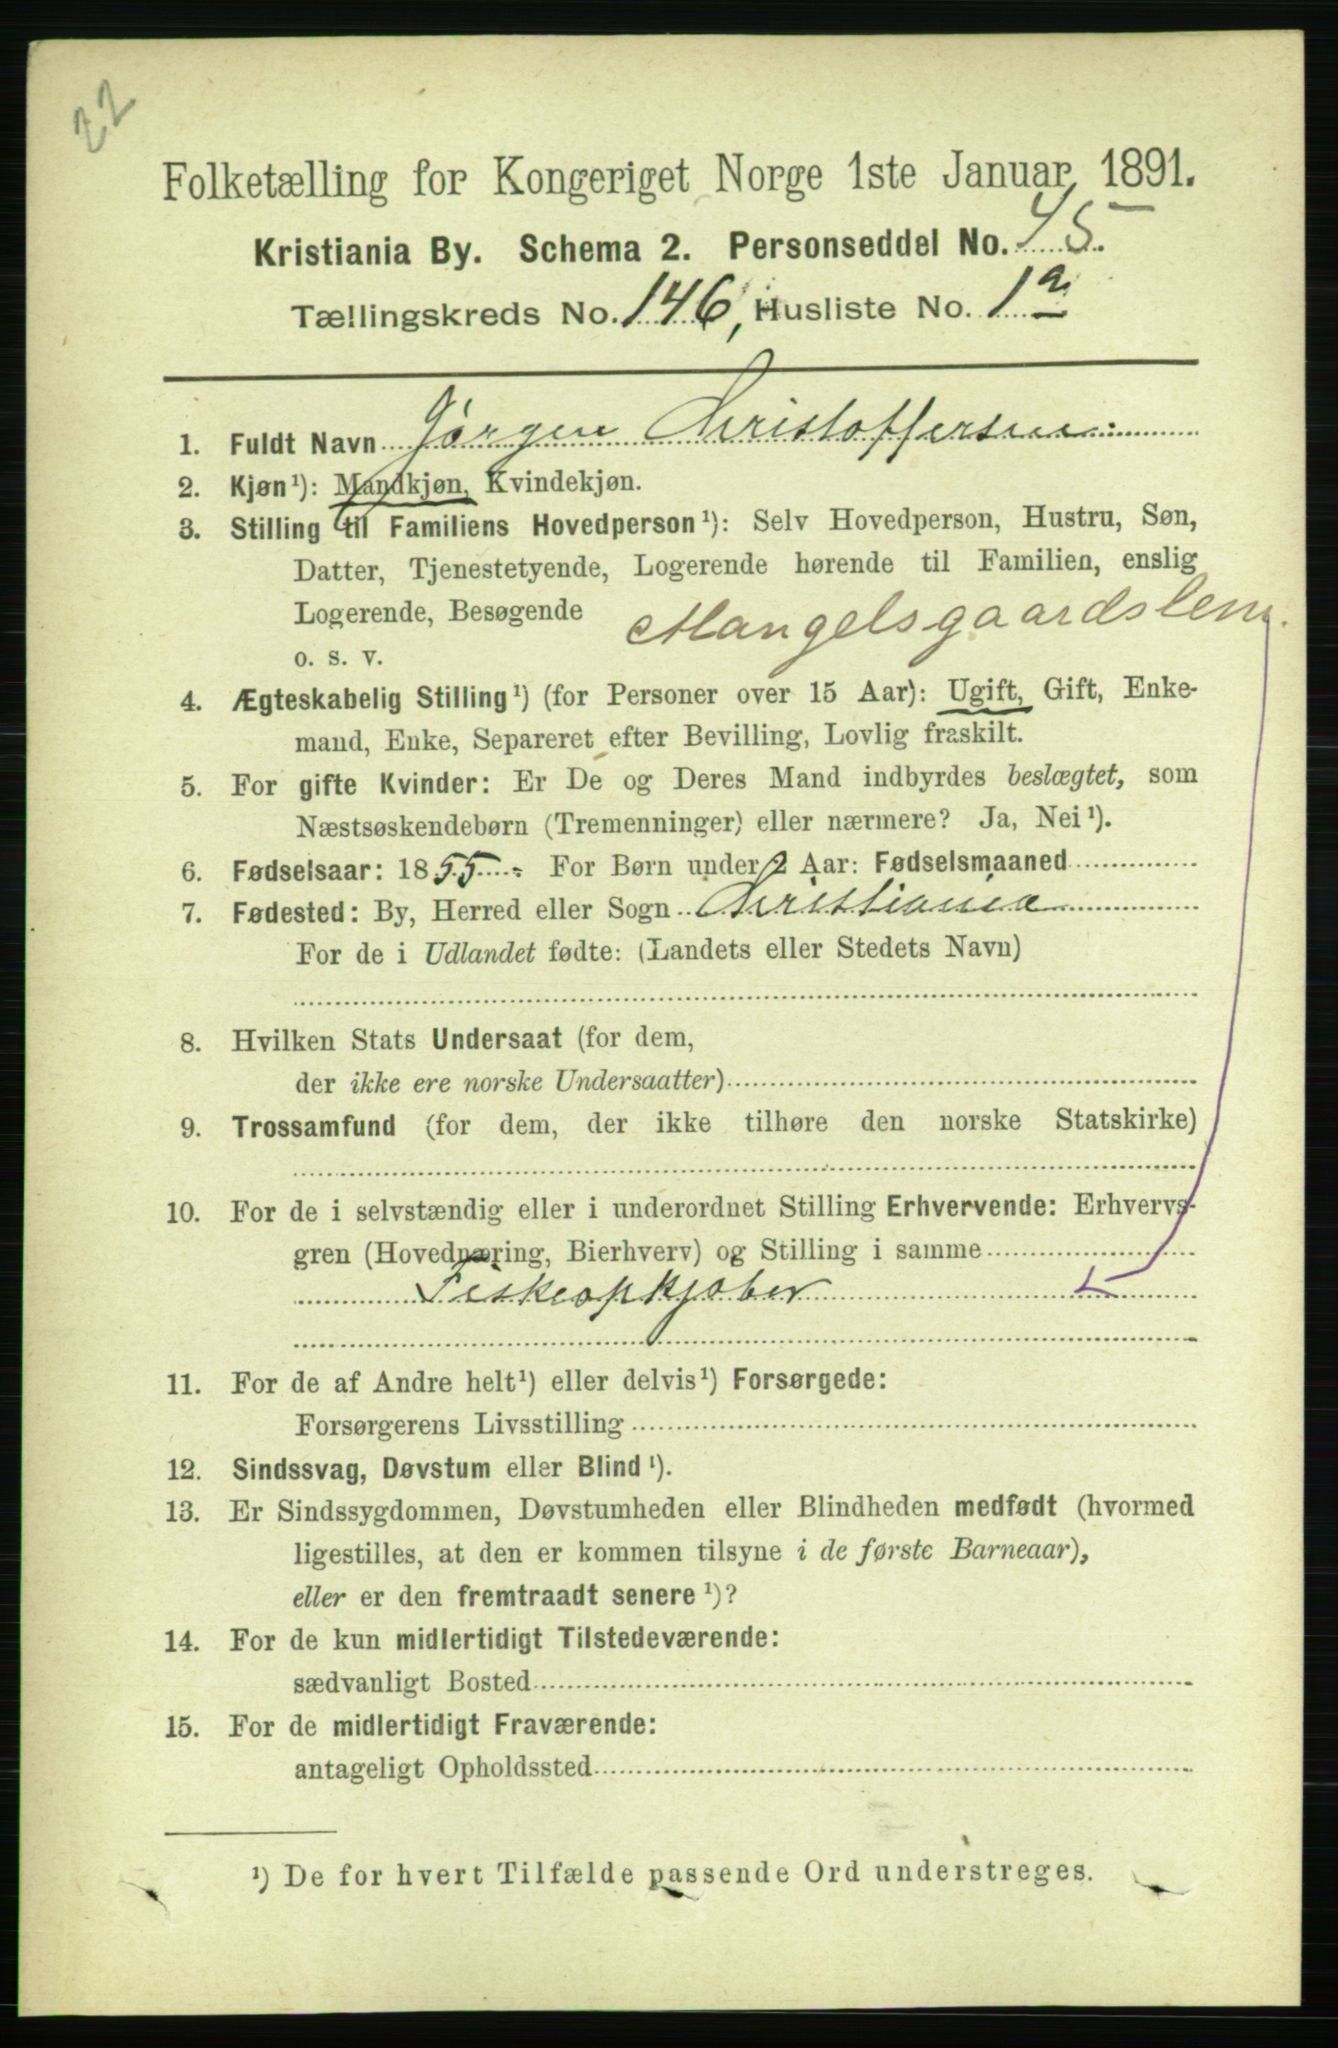 22
Folketælling for Kongeriget Norge 1ste Januar 1891.
Kristiania By. Schema 2. Personseddel No. 45
Tællingskreds No. 146, Husliste No. 1a
1. Fuldt Navn Jörgen Christoffersen
2. Kjøn¹): Mandkjøn, Kvindekjøn.
3. Stilling til Familiens Hovedperson¹): Selv Hovedperson, Hustru, Søn,
Datter, Tjenestetyende, Logerende hørende til Familien, enslig
Logerende, Besøgende Mangelsgaardslem.
o. s. v.
4. Ægteskabelig Stilling¹) (for Personer over 15 Aar): Ugift, Gift, Enke-
mand, Enke, Separeret efter Bevilling, Lovlig fraskilt.
5. For gifte Kvinder: Er De og Deres Mand indbyrdes beslægtet, som
Næstsøskendebørn (Tremenninger) eller nærmere? Ja, Nei¹).
6. Fødselsaar: 1855. For Børn under 2 Aar: Fødselsmaaned
7. Fødested: By, Herred eller Sogn Christiania
For de i Udlandet fødte: (Landets eller Stedets Navn)
8. Hvilken Stats Undersaat (for dem,
der ikke ere norske Undersaatter)
9. Trossamfund (for dem, der ikke tilhøre den norske Statskirke)
10. For de i selvstændig eller i underordnet Stilling Erhvervende: Erhvervs-
gren (Hovednæring, Bierhverv) og Stilling i samme
Fiskeopkjøber
11. For de af Andre helt¹) eller delvis¹) Forsørgede:
Forsørgerens Livsstilling
12. Sindssvag, Døvstum eller Blind¹).
13. Er Sindssygdommen, Døvstumheden eller Blindheden medfødt (hvormed
ligestilles, at den er kommen tilsyne i de første Barneaar),
eller er den fremtraadt senere¹)?
14. For de kun midlertidigt Tilstedeværende:
sædvanligt Bosted
15. For de midlertidigt Fraværende:
antageligt Opholdssted
¹) De for hvert Tilfælde passende Ord understreges.